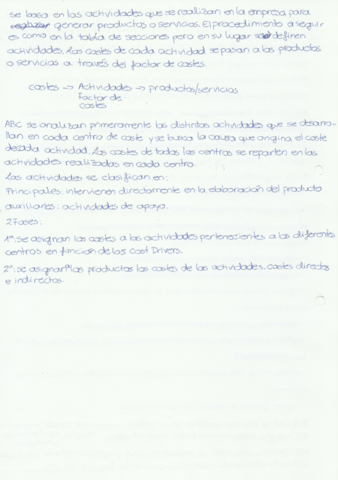 se basa en las actividades que se realizan en la empresa para
generar productos o servicios. El procedimiento a seguir
es como en la tabla de secciones pero en su lugar se definen
actividades. Los costes de cada actividad se pasan a los productos
o servicios a través del factor de costes.
costes → Actividades → productos/servicios
factor de
costes
ABC se analizan primeramente las distintas actividades que se desarro-
llan en cada centro de coste y se busca la causa que origina el coste
de cada actividad. Los costes de todas los centros se reparten en las
actividades realizadas en cada centro.
Las actividades se clasifican en:
Principales: intervienen directamente en la elaboración del producto
auxiliares: actividades de apoyo.
2 Fases:
1º: se asignan los costes a las actividades pertenecientes a los diferentes
centros en función de los Cost Drivers.
2º: se asignan los productos los costes de las actividades. costes directos
e indirectos.